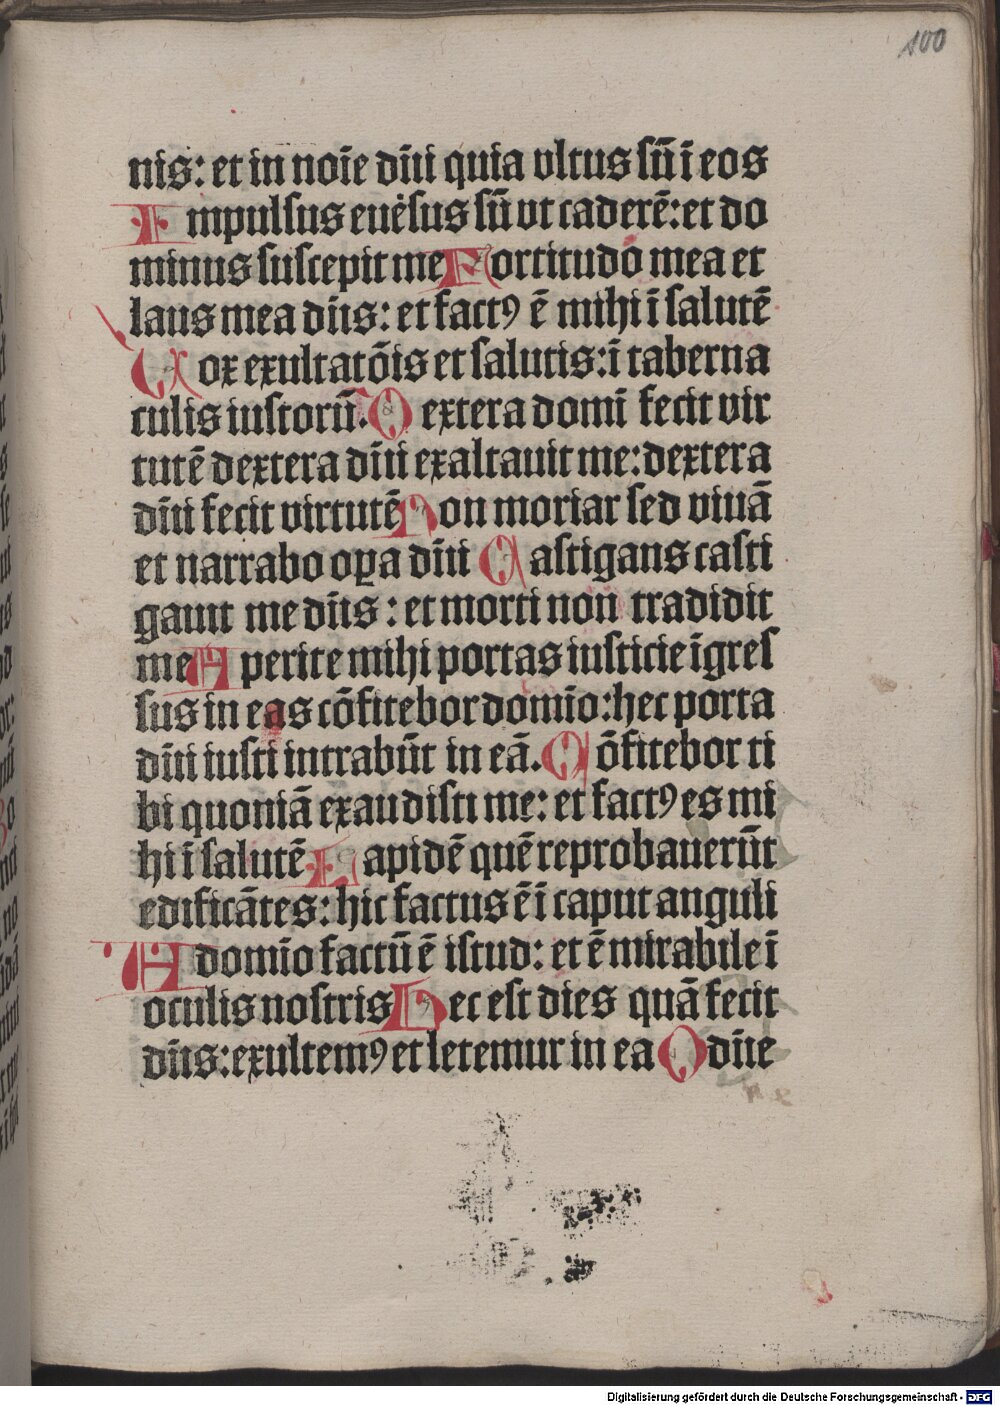 100
nis: et in noīe dn̄i quia vltus sū ī eos
Impulsus euėsus sū vt caderē: et do
minus suscepit me Fortitudo mea et
laus mea dn̄s: et factꝰ ē mihi ī salutē
Vox exultatōis et salutis: ī taberna
culis iustorū. Dextera domī fecit vir
tutē dextera dn̄i exaltauit me: dextera
dn̄i fecit virtutē Non moriar sed viuā
et narrabo oꝑa dn̄i Castigans casti
gauit me dn̄s: et morti non tradidit
me Aperite mihi portas iusticie īgres
sus in eas cōfitebor domīo: hec porta
dn̄i iusti intrabūt in eā. Cōfitebor ti
bi quoniā exaudisti me: et factꝰ es mi
hi ī salutē Lapidē quē reprobauerūt
edificātes: hic factus ē ī caput anguli
A domīo factū ē istud: et ē mirabile ī
oculis nostris Hec est dies quā fecit
dn̄s: exultemꝰ et letemur in ea O dn̄e
Digitalisierung gefördert durch die Deutsche Forschungsgemeinschaft - DFG